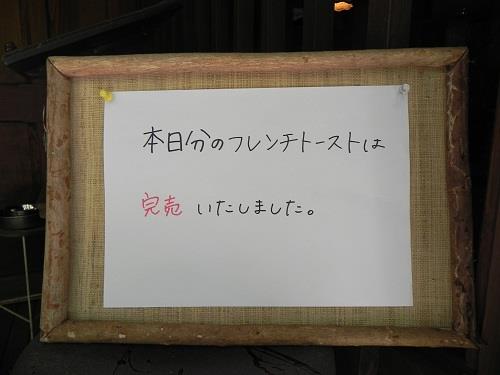 本日分のフレンチトーストは
完売いたしました。